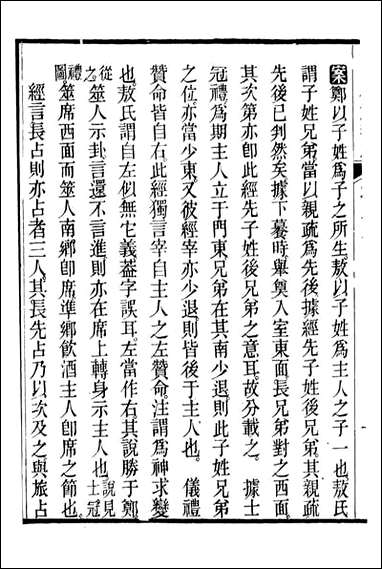 案鄭以子姓爲子之所生敖以子姓爲主人之子一也敖氏
謂子姓兄弟當以親疏爲先後據經先子姓後兄弟其親疏
先後已判然矣據下暮時舉奠入室東面長兄弟對之西面
其次第亦卽此經先子姓後兄弟之意耳故分載之 據士
冠禮爲期主人立于門東兄弟在其南少退則此子姓兄弟
之位亦當少東又彼經宰亦少退則皆後于主人也 儀禮
贊命皆自右此經獨言宰自主人之左贊命注謂爲神求變
也敖氏謂自左似無它義蓋字誤耳左當作右其說勝于鄭
從之筮人示卦言還不言進則亦在席上轉身示主人也說見士冠禮
圖筮席西面而筮人南鄉卽席準鄉飲酒主人卽席之節也
經言長占則亦占者三人其長先占乃以次及之與旅占